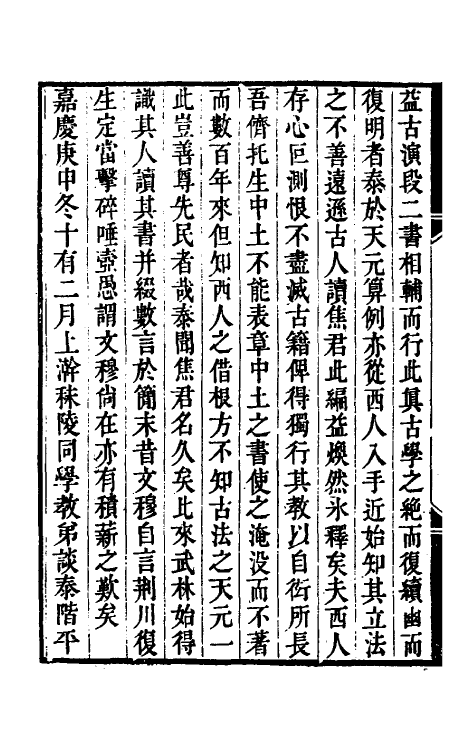 益古演段二書相輔而行此真古學之絕而復續幽而
復明者泰於天元算例亦從西人入手近始知其立法
之不善遠遜古人讀焦君此編益煥然氷釋矣夫西人
存心叵測恨不盡滅古籍俾得獨行其教以自衒所長
吾儕托生中土不能表章中土之書使之淹没而不著
而數百年來但知西人之借根方不知古法之天元一
此豈善尊先民者哉泰聞焦君名久矣此來武林始得
識其人讀其書并綴數言於簡末昔文穆自言荆川復
生定當擊碎唾壺愚謂文穆尚在亦有積薪之歎矣
嘉慶庚申冬十有二月上澣秣陵同學教弟談泰階平